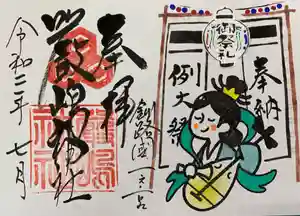 御祭礼
奉納
例大祭
奉拝
釧路國一之宮
嚴島神社
嚴島神社
令和二年 七月